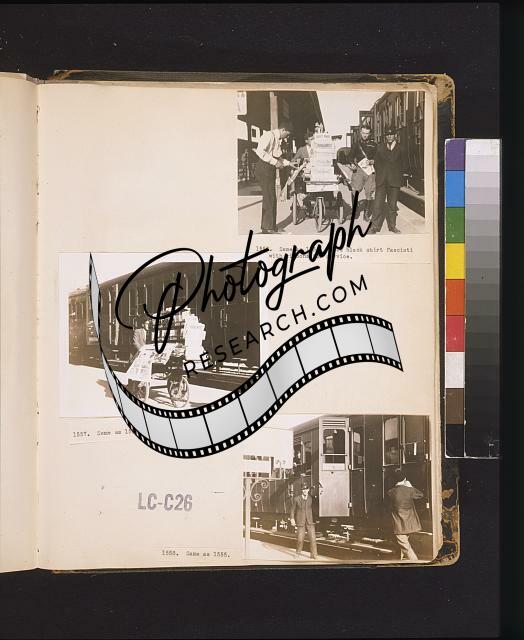 Same
black shirt Fascisti
with
Photograph
RESEARCH.COM
1557. Same as
LC-C26
1558. Same as 1555.